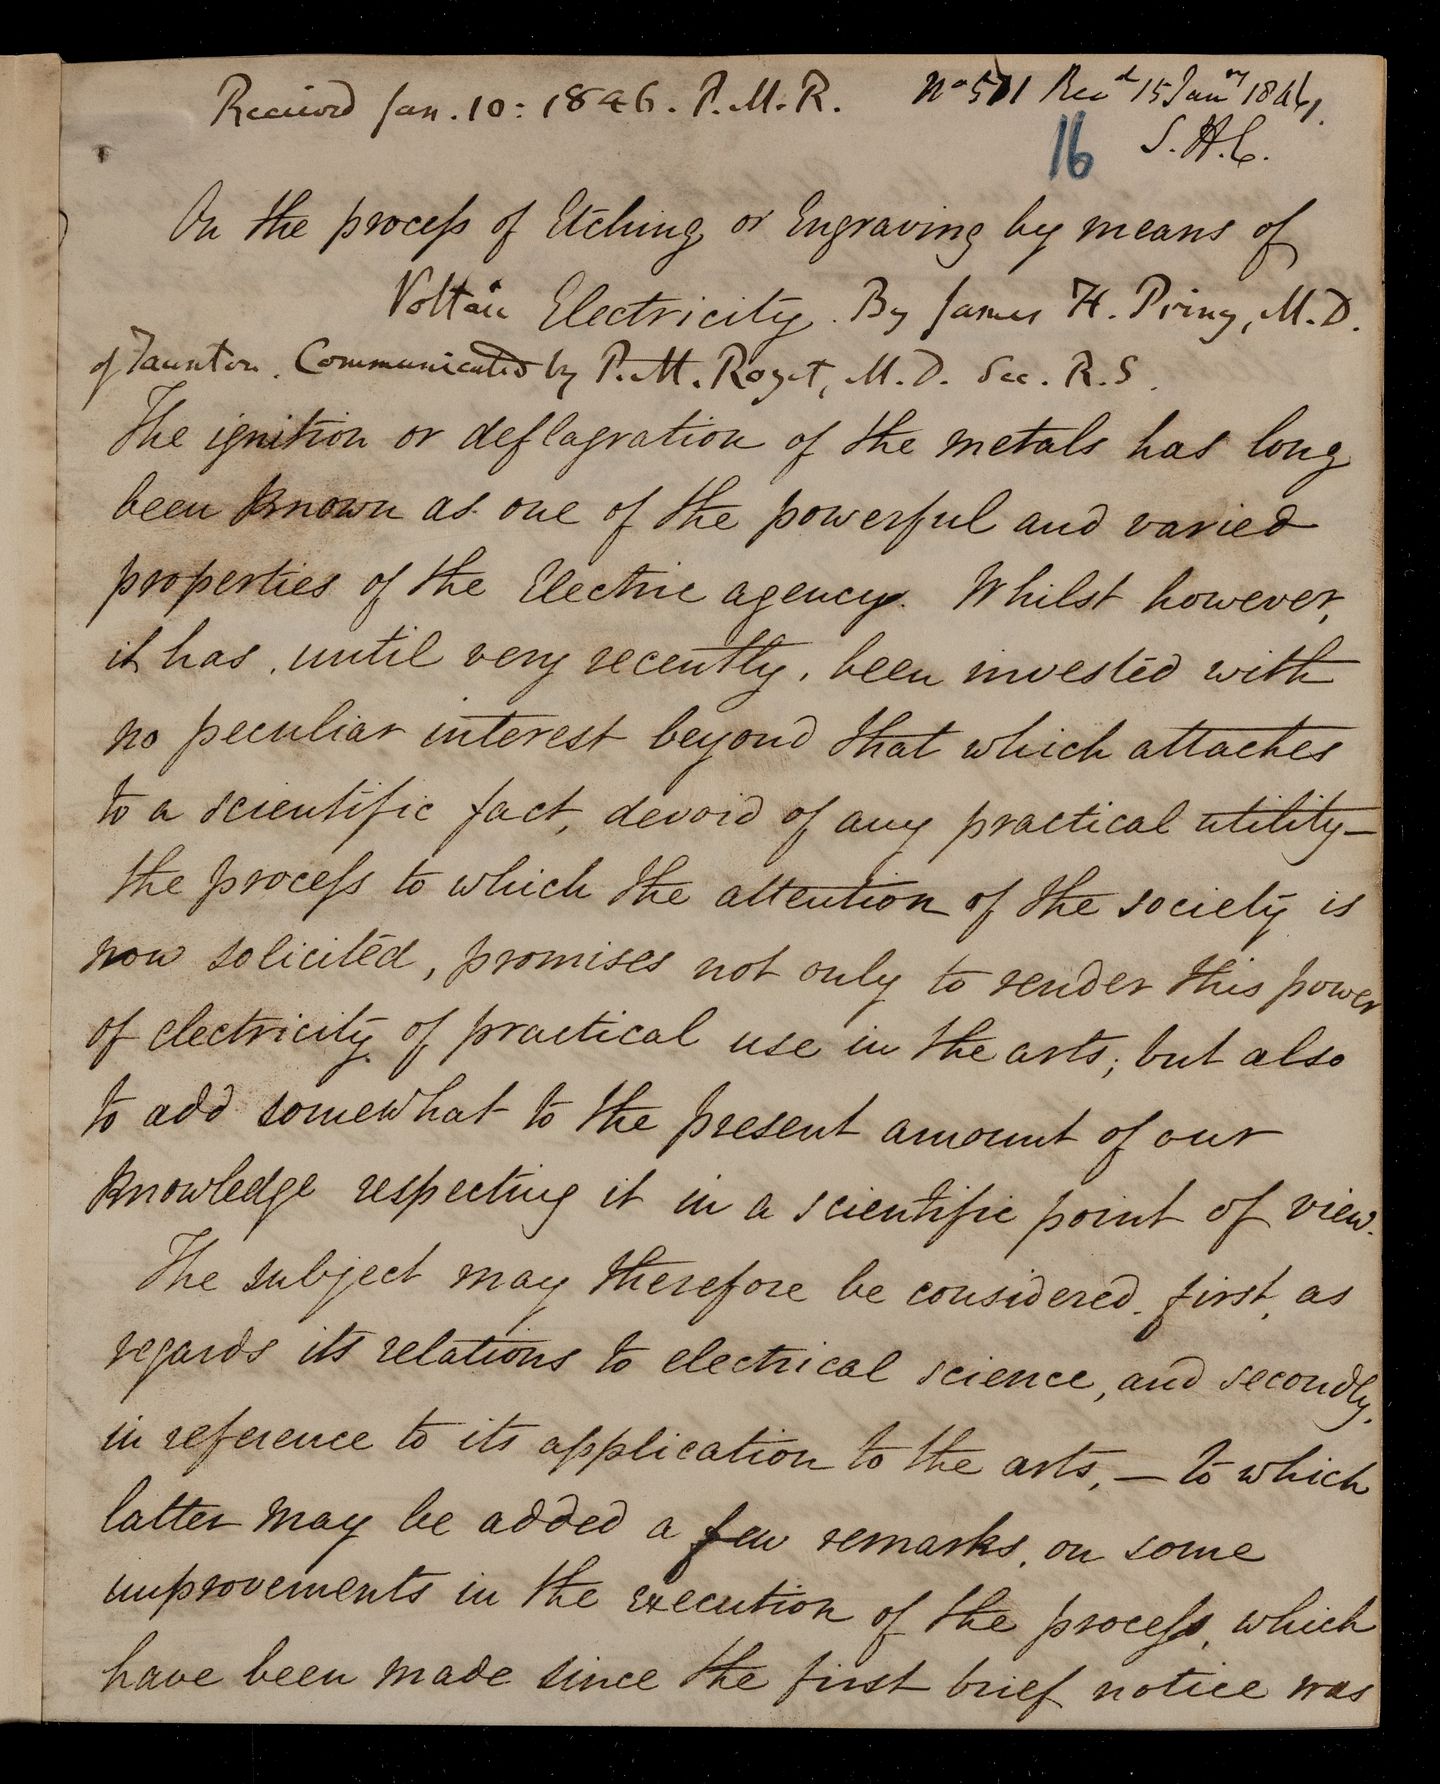 Received Jan. 10: 1846. P.M.R.
No 501 Recd 15 Jany 1846.
16 S.H.C.
On the process of Etching or Engraving by means of
Voltaic Electricity. By James H. Pring, M.D.
of Taunton. Communicated by P.M. Roget, M.D. Sec. R.S.
The ignition or deflagration of the metals has long
been known as one of the powerful and varied
properties of the Electric agency. Whilst however,
it has, until very recently, been invested with
no peculiar interest beyond that which attaches
to a scientific fact, devoid of any practical utility—
the process to which the attention of the society is
now solicited, promises not only to render this power
of electricity of practical use in the arts; but also
to add somewhat to the present amount of our
knowledge respecting it in a scientific point of view.
The subject may therefore be considered. first, as
regards its relations to electrical science, and secondly,
in reference to its application to the arts, — to which
latter may be added a few remarks, on some
improvements in the execution of the process, which
have been made since the first brief notice was